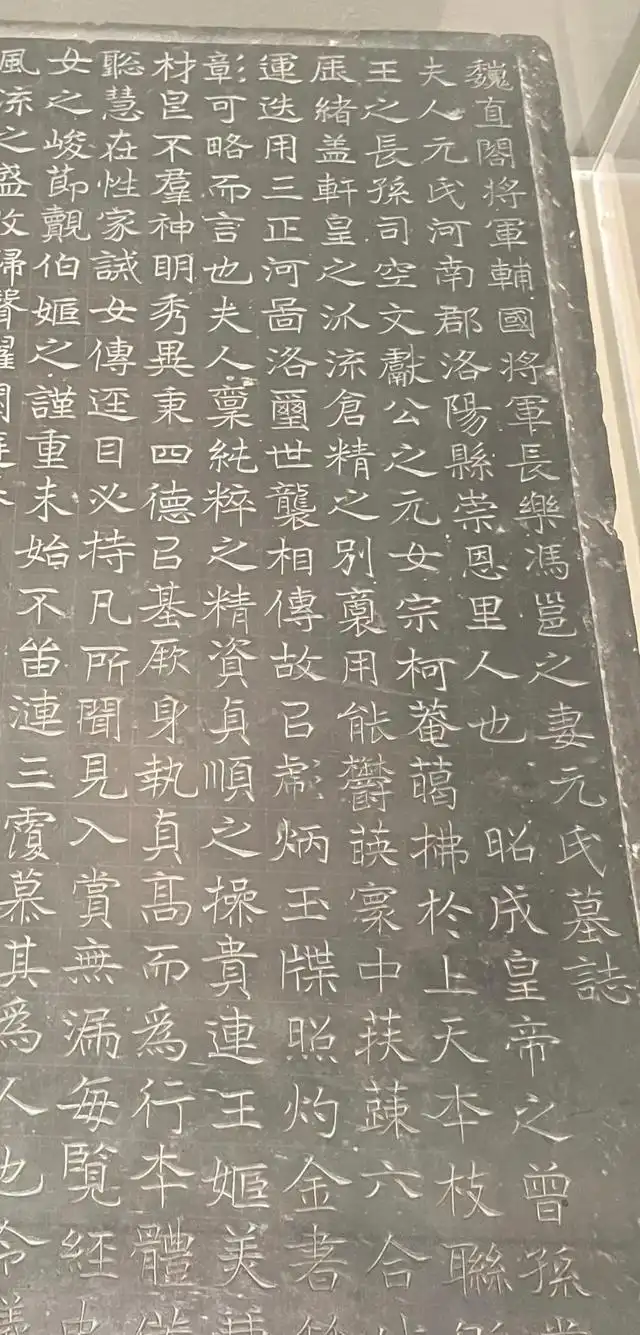 魏直閣將軍輔國將軍長樂馮邕之妻元氏墓誌
夫人元氏河南郡洛陽縣崇恩里人也昭成皇帝之曾孫
王之長孫司空文獻公之元女宗柯菴藹拂於上天本枝聯
辰緒蓋軒皇之派流倉精之別裔用能欝映寰中扶疎六合
運迭用三正河啚洛璽世襲相傳故已彪炳玉牒照灼金書
彰可略而言也夫人稟純粹之精資貞順之操貴連王姬美
材皀不羣神明秀異秉四德已基厥身執貞高而為行本體
聡慧在性家誡女傳逕目必持凡所聞見入賞無漏每覽經史
女之峻莭觀伯姬之謹重未始不留漣三覆慕其為人也令
風流之盛故歸聲